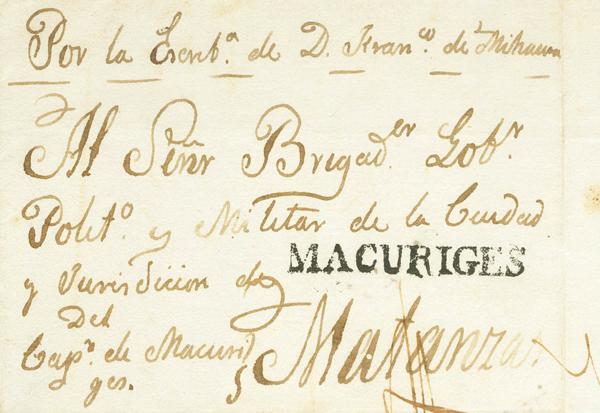 Por la Escrib.ª de D. Fran.co de
Al Señr Brigad.er Gob.r
Polit.o y Militar de la Ciudad
MACURIGES
y Jurisdiccion de
Matanzas
Del
Cap.n de Macuri
ges.